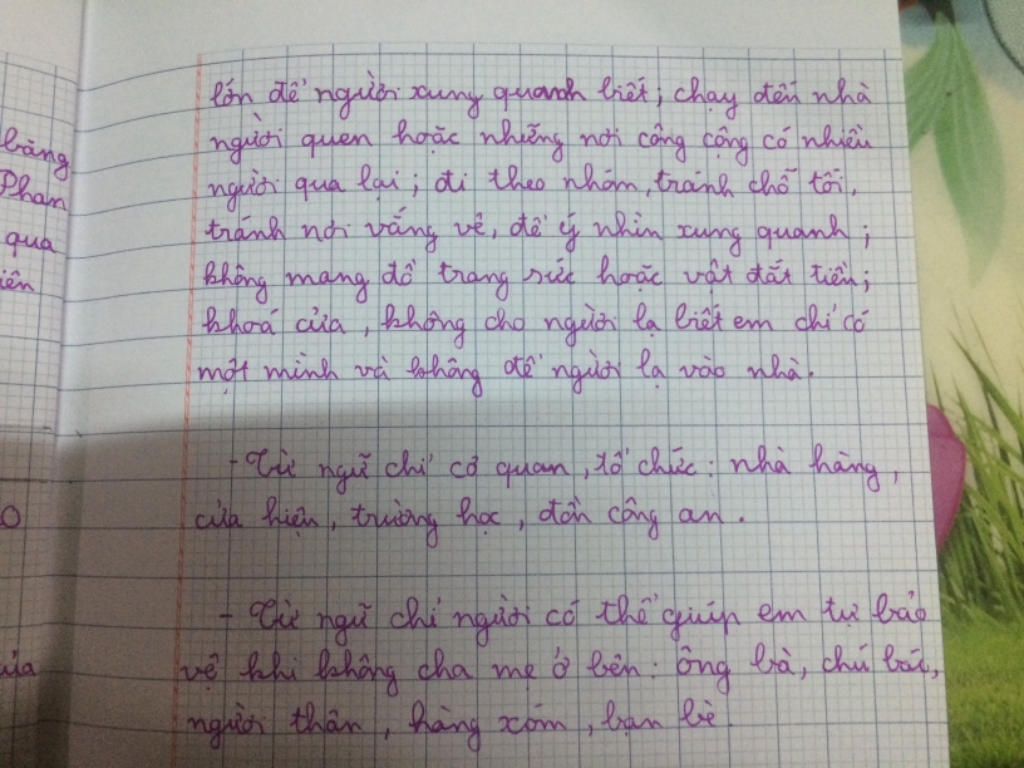 lớn để người xung quanh biết; chạy đến nhà
người quen hoặc những nơi công cộng có nhiều
người qua lại; đi theo nhóm, tránh chỗ tối,
tránh nơi vắng vẻ, để ý nhìn xung quanh;
không mang đồ trang sức hoặc vật đắt tiền;
khoá cửa, không cho người lạ biết em chỉ có
một mình và không để người lạ vào nhà.
- Từ ngữ chỉ cơ quan, tổ chức: nhà hàng,
cửa hiệu, trường học, đồn công an.
- Từ ngữ chỉ người có thể giúp em tự bảo
vệ khi không cha mẹ ở bên: ông bà, chú bác,
người thân, hàng xóm, bạn bè.
Phan
qua